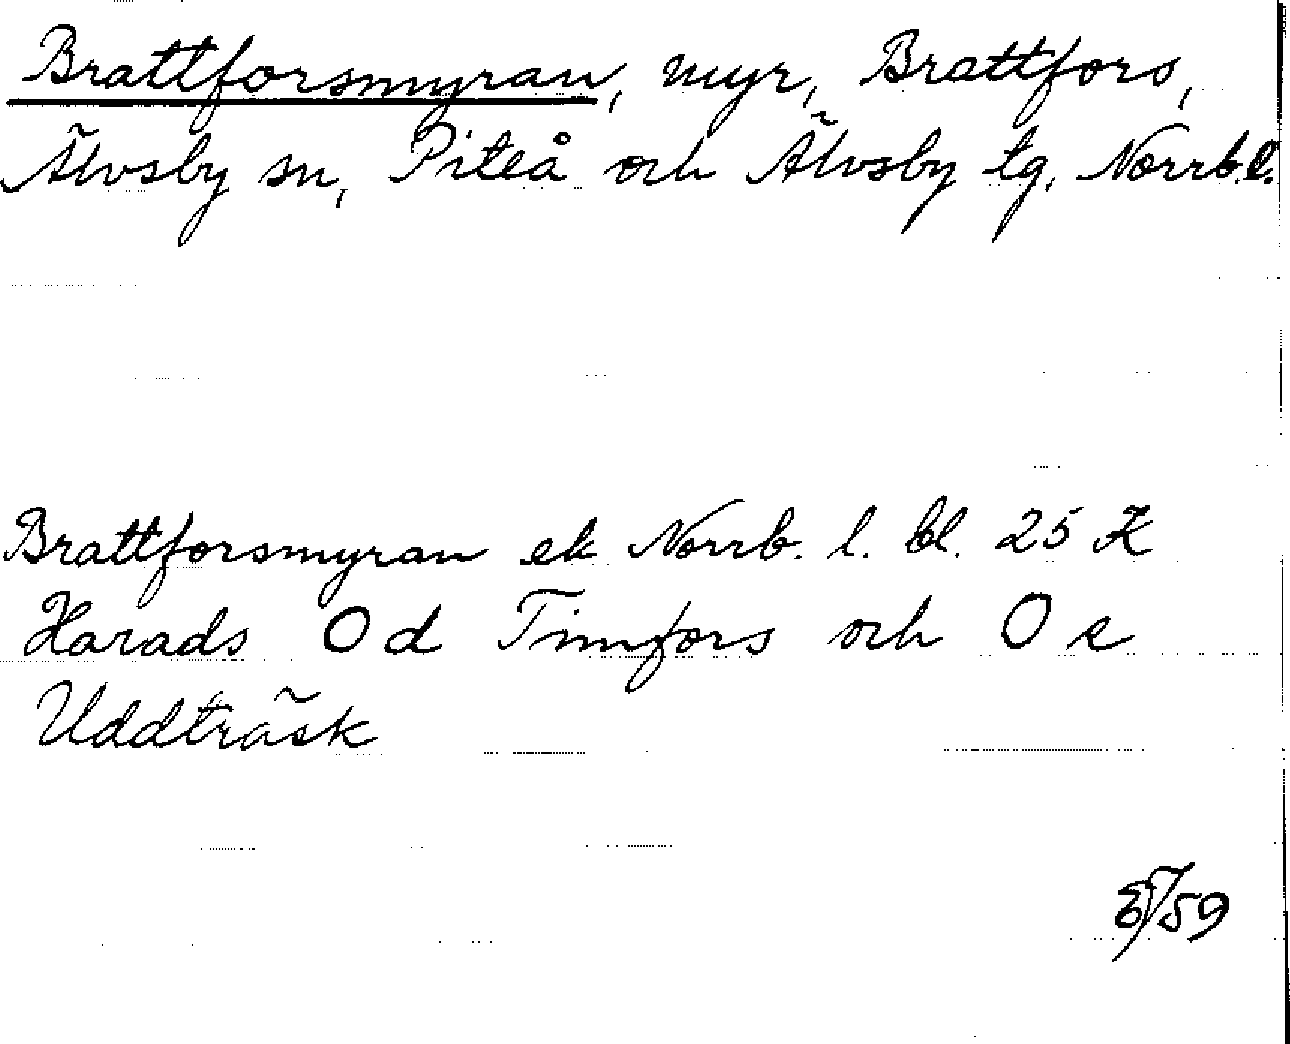 Brattforsmyran, myr, Brattfors,
Älvsby sn, Piteå och Älvsby tg, Norrb.l.
Brattforsmyran ek Norrb. l. bl. 25 K
Harads 0 d Timfors och 0 e
Uddträsk